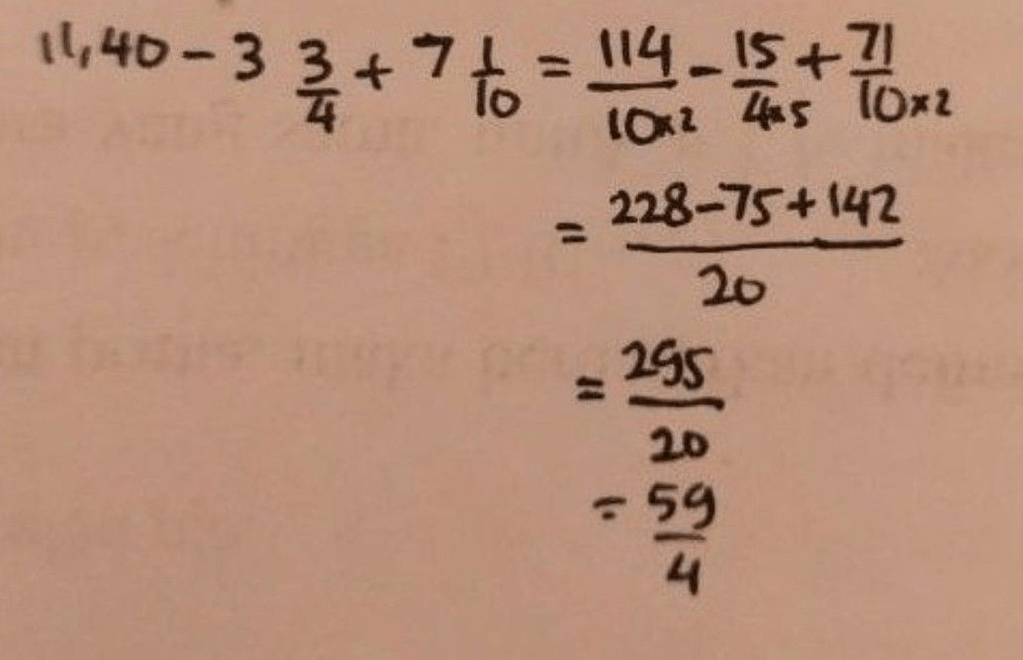 11,40 - 3 3/4 + 7 1/10 = 114/10×2 - 15/4×5 + 71/10×2
= 228-75+142/20
= 295/20
= 59/4